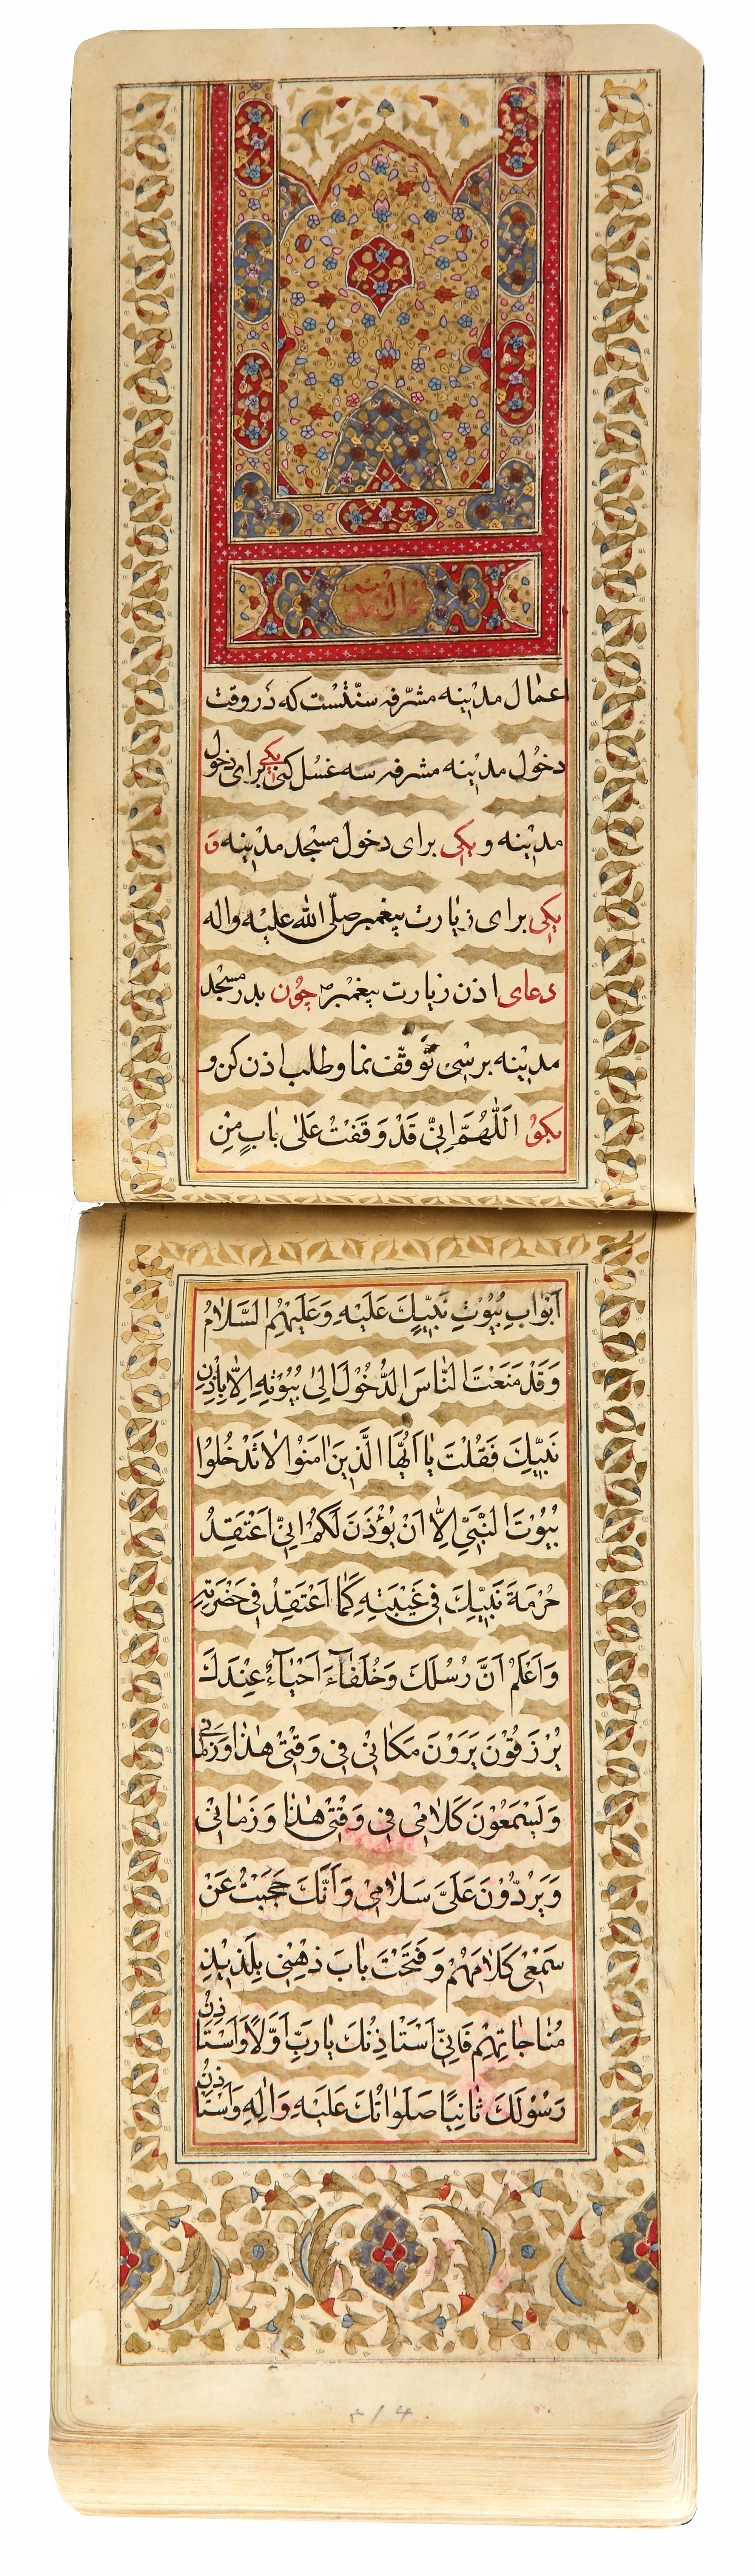 اعمال مدینه مشرفه سنّتست که در وقت
دخُول مدینه مشرفه سه غسُل کنی یکی برای دخول
مدینه و یکی برای دخول مسْجد مدینه و
یکی برای زیارت پیغمبر صلّی الله علیه واله
دعای اذن زیارت پیغمبر ص چوُن بدر مسجد
مدینه برسی توقّف نما و طلب اذن کن و
بگوُ اَللّٰهُمَّ اِنّی قَدْ وَقَفْتُ عَلیٰ بٰابٍ مِنِ
اَبْوٰابِ بُیُوُتِ نَبِیِّكَ عَلَیْهِ وَعَلَیْهِمُ السَّلٰامُ
وَقَدْ مَنَعْتَ النّٰاسَ الدُّخُوْلَ اِلیٰ بُیُوْتِهِ اِلّٰا بِاِذْنِ
نَبِیِّكَ فَقُلْتَ یٰا اَیُّهَا الَّذِینَ اٰمَنُوا لٰا تَدْخُلُوا
بُیُوُتَ النَّبِیِّ اِلّٰا اَنْ یُؤْذَنَ لَکُمْ اِنّیِ اَعْتَقِدُ
حُرْمَةَ نَبِیِّكَ فِی غَیْبَتِهِ کَمٰا اَعْتَقِدُ فی حَضْرَتِهِ
وَاَعْلَمُ اَنَّ رُسُلَكَ وَخُلَفٰآءَ اَحْیٰآءٌ عِنْدَكَ
یُرْزَقُوْنَ یَرَوْنَ مَکٰانْی فِی وَقْتْی هٰذٰا وَزَمٰانی
وَیَسْمَعُوْنَ کَلٰامْی فِی وَقْتْی هٰذٰا وَ زَمٰانْی
وَیَرُدُّوْنَ عَلَیَّ سَلٰامْی وَاَنَّكَ حَجَبْتَ عَنْ
سَمْعْی کَلٰامَهُمْ وَ فَتَحْتَ بٰابَ ذِهْنِی بِلَذیذِ
مُنٰاجٰاتِهِمْ فَاِنّی اَسْتَاذِنُكَ یٰا رَبِّ اَوَّلًا وَاَسْتَاذِنُ
رَسُوْلَكَ ثٰانِیًا صَلَوٰاتُكَ عَلَیْهِ وَاٰلِهِ وَاَسْتَاذِنُ